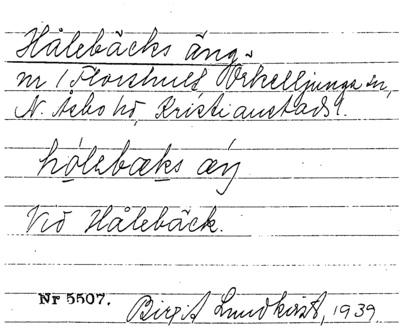 Hålebäcks äng
nr 1 Florshult Örkelljunga sn,
N. Åsbo hd, Kristianstads l.
hǫlebæks æŋ
Vid Hålebäck.
Nr 5507. Birgit Lundkvist, 1939